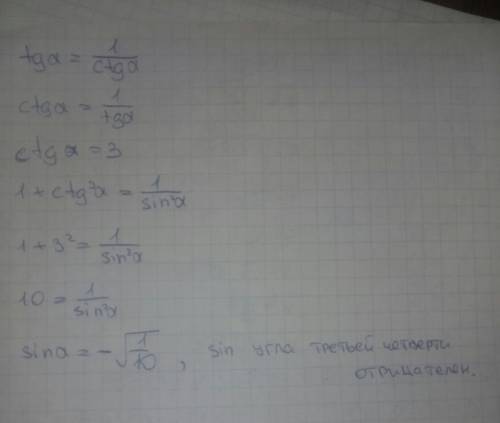 tgα = 1/ctgα
ctgα = 1/tgα
ctgα = 3
1 + ctg²α = 1/sin²α
1 + 3² = 1/sin²α
10 = 1/sin²α
sinα = -√(1/10), sin угла третьей четверти
отрицателен.